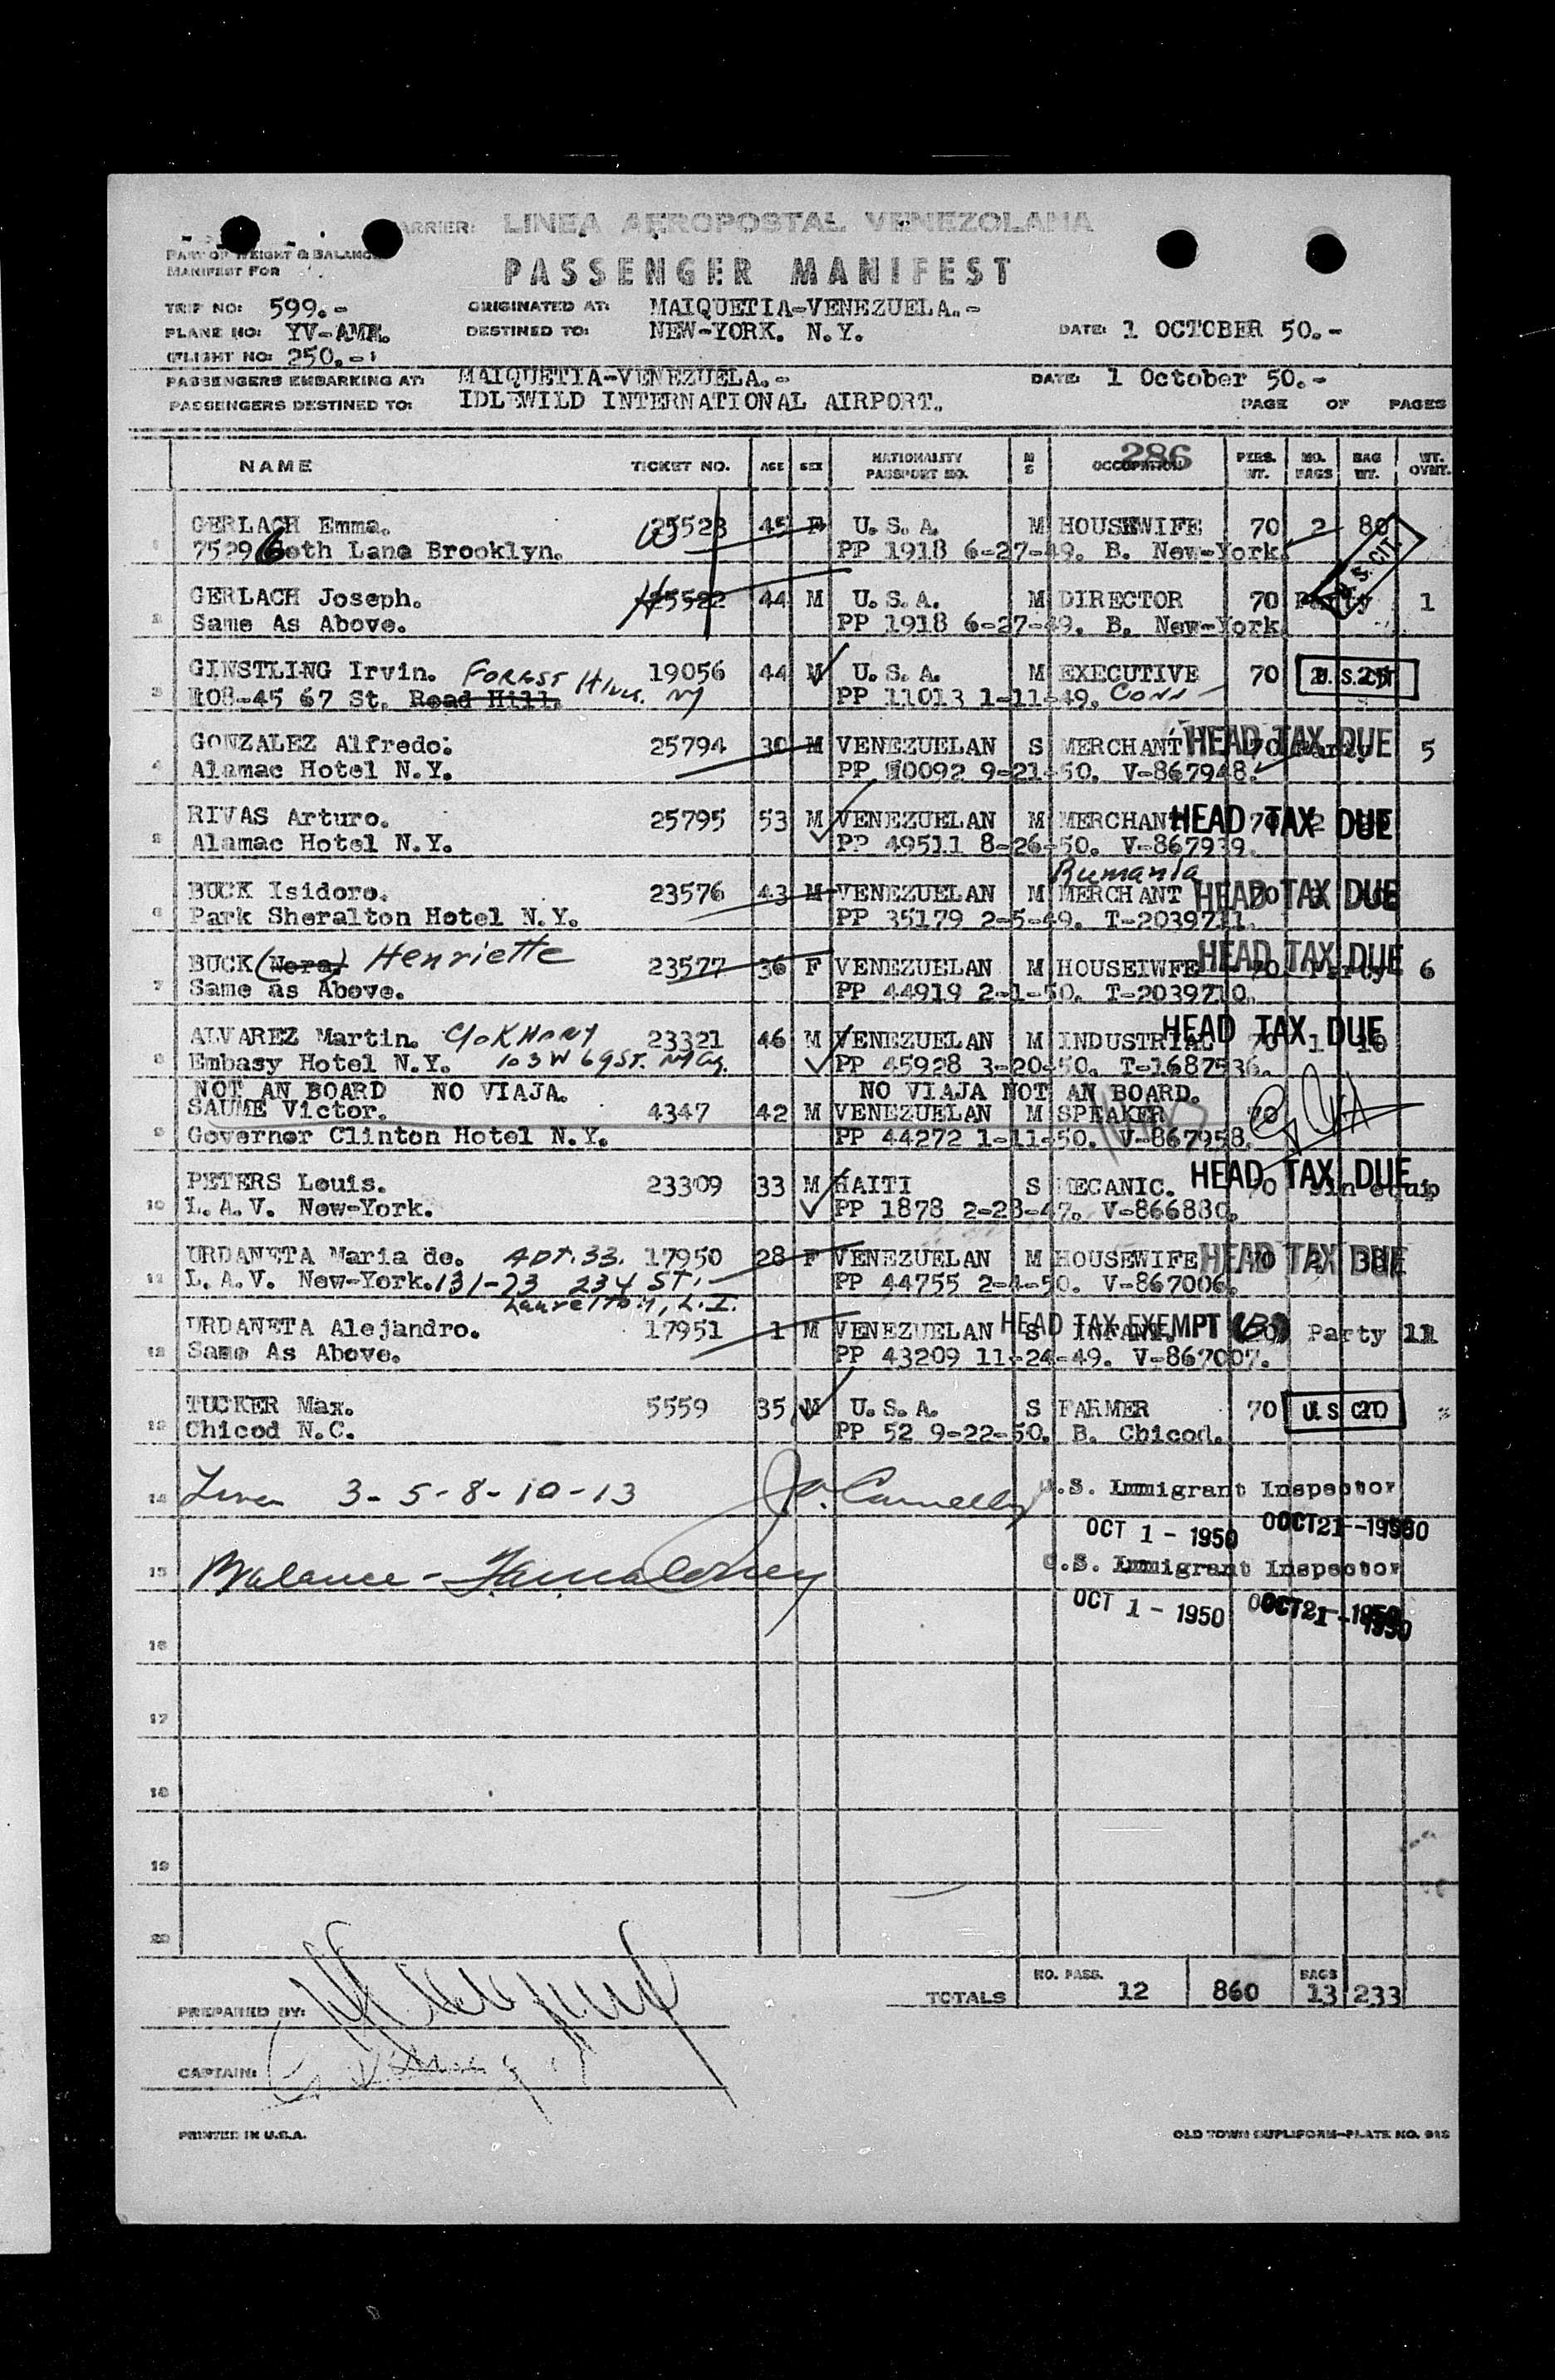 CARRIER: LINEA AEROPOSTAL VENEZOLANA
PART OF WEIGHT & BALANCE
MANIFEST FOR
PASSENGER MANIFEST
TRIP NO: 599.- ORIGINATED AT: MAIQUETIA-VENEZUELA.-
PLANE NO: YV-AMA. DESTINED TO: NEW-YORK. N.Y. DATE: 1 OCTOBER 50.-
FLIGHT NO: 250.-
PASSENGERS EMBARKING AT: MAIQUETIA-VENEZUELA.- DATE: 1 October 50.-
PASSENGERS DESTINED TO: IDLEWILD INTERNATIONAL AIRPORT. PAGE OF PAGES
286
NAME TICKET NO. AGE SEX NATIONALITY PASSPORT NO. M S OCCUPATION PERS. WT. NO. BAGS BAG WT. WT. OVNT.
GERLACH Emma. 25523 45 F U.S.A. M HOUSEWIFE 70 2 80
1 7529 6eth Lane Brooklyn. PP 1918 6-27-49. B. New-York. U.S. CIT.
GERLACH Joseph. 25522 44 M U.S.A. M DIRECTOR 70 Party 1
2 Same As Above. PP 1918 6-27-49. B. New-York
GINSTLING Irvin. FOREST HILLS. NY 19056 44 M U.S.A. M EXECUTIVE 70 U.S. CIT
3 108-45 67 St. Road Hill. PP 11013 1-11-49. CONN
GONZALEZ Alfredo. 25794 30 M VENEZUELAN S MERCHANT 70 Party 5 HEAD TAX DUE
4 Alamac Hotel N.Y. PP 10092 9-21-50. V-867948.
RIVAS Arturo. 25795 53 M VENEZUELAN M MERCHANT 70 2 HEAD TAX DUE
5 Alamac Hotel N.Y. PP 49511 8-26-50. V-867939.
Rumania
BUCK Isidoro. 23576 43 M VENEZUELAN M MERCHANT 70 HEAD TAX DUE
6 Park Sheralton Hotel N.Y. PP 35179 2-5-49. T-2039711.
BUCK (Nora) Henriette 23577 36 F VENEZUELAN M HOUSEIWFE 70 Party 6 HEAD TAX DUE
7 Same as Above. PP 44919 2-1-50. T-2039710.
ALVAREZ Martin. 23321 46 M VENEZUELAN M INDUSTRIAL 70 1 10 HEAD TAX DUE
8 Embasy Hotel N.Y. 103 W 69 ST. PP 45928 3-20-50. T-1687536.
NOT AN BOARD NO VIAJA. NO VIAJA NOT AN BOARD.
SAUME Victor. 4347 42 M VENEZUELAN M SPEAKER 70
9 Governor Clinton Hotel N.Y. PP 44272 1-11-50. V-867958.
PETERS Louis. 23309 33 M HAITI S MECANIC. 70 Sin equip HEAD TAX DUE
10 L.A.V. New-York. PP 1878 2-28-47. V-866880.
URDANETA Maria de. APT. 33. 17950 28 F VENEZUELAN M HOUSEWIFE 70 2 38 HEAD TAX DUE
11 L.A.V. New-York. 131-73 234 ST. PP 44755 2-4-50. V-867006.
Laurelton, L.I.
URDANETA Alejandro. 17951 1 M VENEZUELAN S INFANT. Party 11 HEAD TAX EXEMPT (B)
12 Same As Above. PP 43209 11-24-49. V-867007.
TUCKER Max. 5559 35 M U.S.A. S FARMER 70 U.S. CIT
13 Chicod N.C. PP 52 9-22-50. B. Chicod.
14 3-5-8-10-13 U.S. Immigrant Inspector
OCT 1 - 1950 OCT 1 - 1950
15 Balance - U.S. Immigrant Inspector
OCT 1 - 1950 OCT 1 - 1950
16
17
18
19
20
TOTALS NO. PASS. 12 860 BAGS 13 233
PREPARED BY:
CAPTAIN:
PRINTED IN U.S.A. OLD TOWN DUPLIFORM-PLATE NO. 918